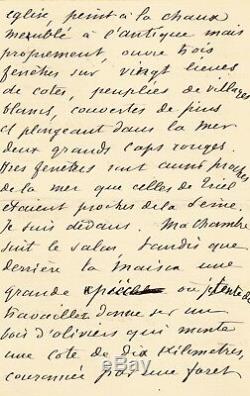 eglise, peint à la chaux
meublé à l'antique mais
proprement, ouvre trois
fenêtres sur vingt lieues
de cotes, peuplées de villages
blancs, couvertes de pins
et plongeant dans la mer
deux grands caps rouges.
Mes fenêtres sont aussi proches
de la mer que celles de Triel
étaient proches de la Seine.
Je suis dedans. Ma chambre
suit le salon tandis que
derrière la maison une
grande pièce où
travailler donne sur un
bois d'oliviers qui monte
une cote de dix kilometres,
couronnée par une foret
ebay